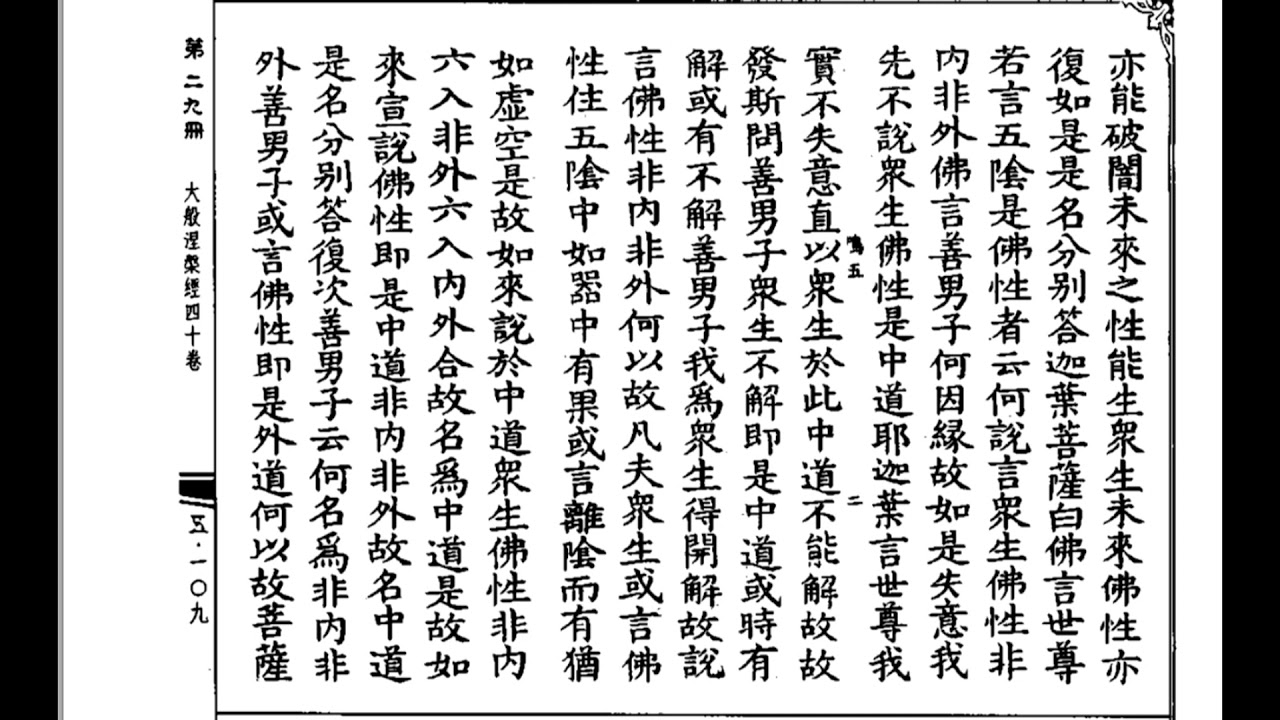 亦能破闇未來之性能生衆生未來佛性亦
復如是是名分別答迦葉菩薩白佛言世尊
若言五陰是佛性者云何說言衆生佛性非
內非外佛言善男子何因緣故如是失意我
先不說衆生佛性是中道耶迦葉言世尊我
鳴五
二
實不失意直以衆生於此中道不能解故故
發斯問善男子衆生不解即是中道或時有
解或有不解善男子我爲衆生得開解故說
言佛性非內非外何以故凡夫衆生或言佛
性住五陰中如器中有果或言離陰而有猶
如虛空是故如來說於中道衆生佛性非內
六入非外六入內外合故名爲中道是故如
來宣說佛性即是中道非內非外故名中道
是名分別答復次善男子云何名爲非內非
外善男子或言佛性即是外道何以故菩薩
第二九冊 大般涅槃經四十卷 五·一〇九